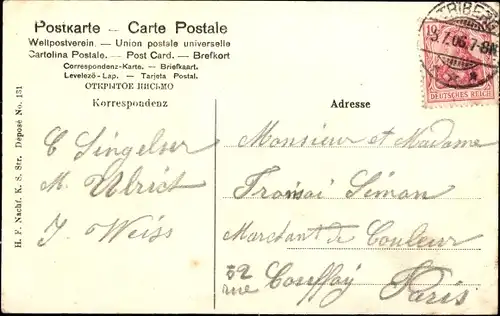 Postkarte — Carte Postale
Weltpostverein. — Union postale universelle
Cartolina Postale. — Post Card. — Brefkort
Correspondenz-Karte. — Briefkaart.
Levelező-Lap. — Tarjeta Postal.
ОТКРЫТОЕ ПИСЬМО
Korrespondenz
Adresse
TRIBERG
19.7.06.7-8N.
DEUTSCHES REICH
H. F. Nachf. K. S. Str. Deposé No. 131
C Singelser
M. Ulrich
J. Weiss
Monsieur et Madame
Simon
Marchant de Couleur
52
rue Paris